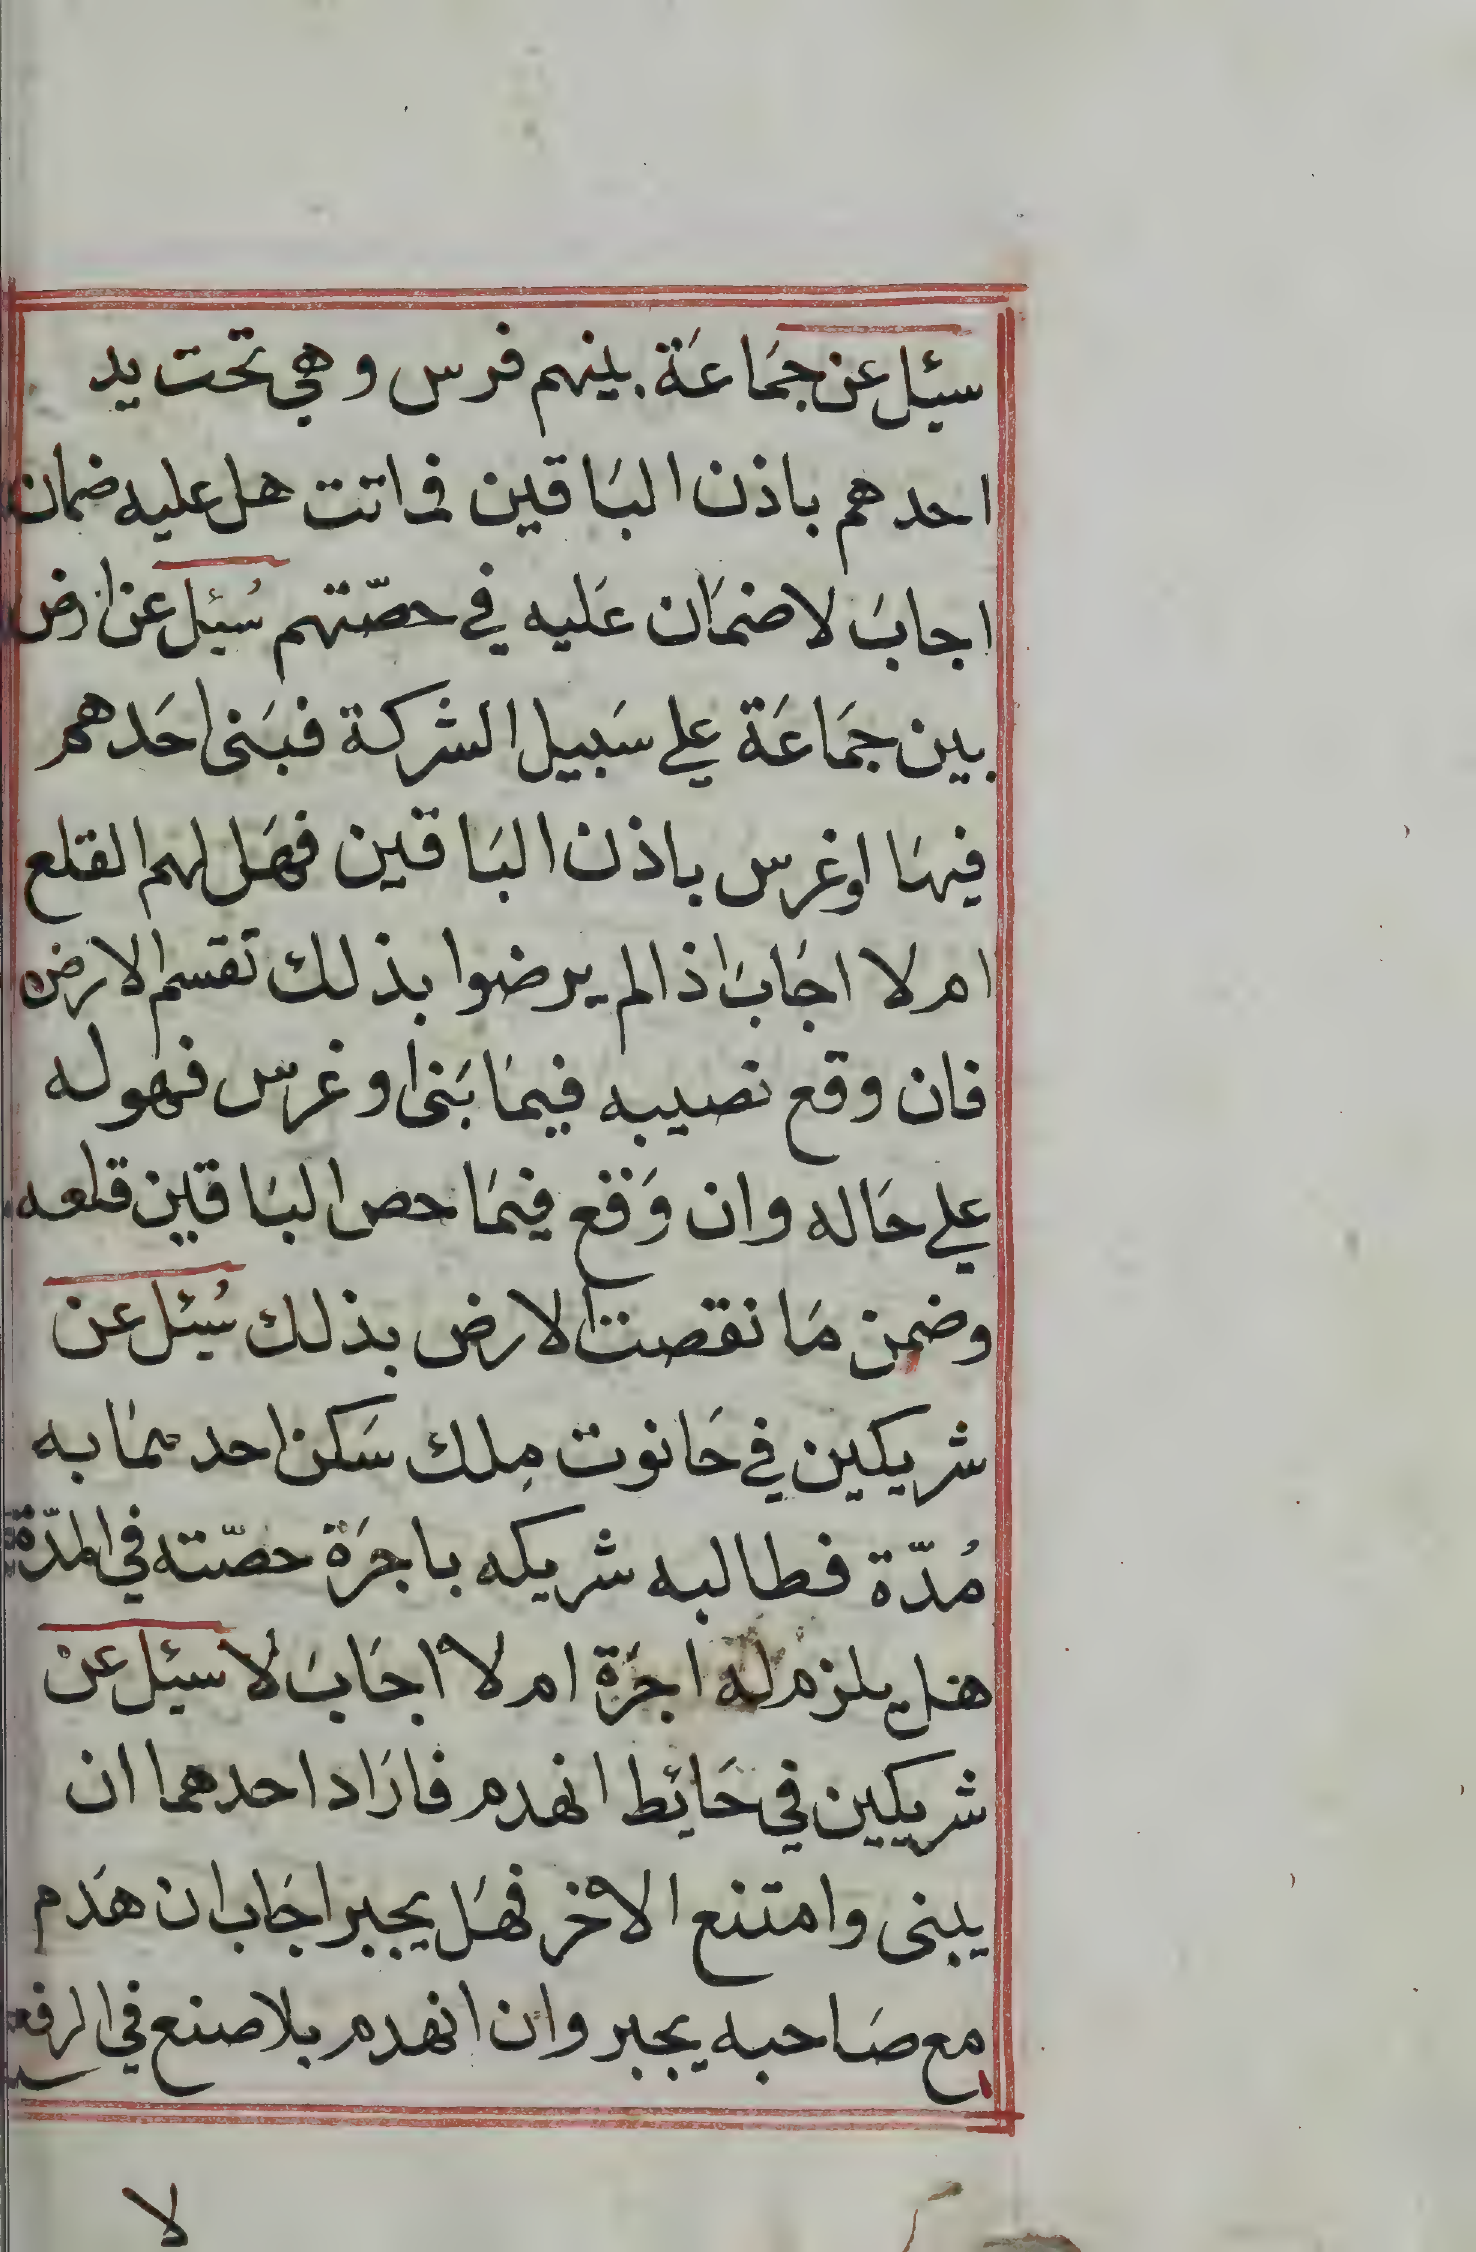 سئل عن جمَاعَة بينهم فرس وهي تحت يد
احدهم باذن البَاقين فماتت هل عليه ضمان
اجابَ لا ضمَان عَليه في حصّتهم سُئل عن ارض
بين جمَاعَة علي سَبيل الشركة فبَنى احَدهم
فيهَا اوغرس باذن البَاقين فهَل لهم القلع
ام لا اجَابَ اذا لم يرضوا بذلك تقسم الارض
فان وقع نصيبه فيمَا بَنى او غرس فهو له
علي حَاله وان وَقع فيمَا حص البَاقين قلعه
وضمن مَا نقصت الارض بذلك سُئل عن
شريكين في حَانوت مِلك سَكن احدهمَا به
مُدّة فطالبه شريكه باجرَة حصّته في المدّة
هَل يلزم له اجرَة ام لا اجَابَ لا سئل عن
شريكين في حَائط انهدم فارَاد احدهما ان
يبنى وامتنع الاخر فهَل يجبر اجَاب ان هَدم
مع صَاحبه يجبر وان انهدم بلا صنع في
لا